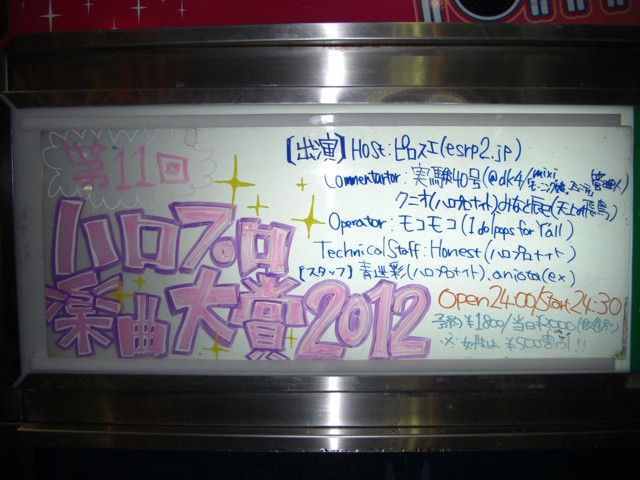 第11回
ハロプロ
楽曲大賞2012
[出演] Host:ピロスエ(esrp2.jp)
Commentator:実験40号(@dk4/mixi 管理人)
クニオ(ハロプロナイト)みなと(天上の飛鳥)
Operator:モコモコ(Idolpops for Y'all)
Technical Staff:Honest(ハロプロナイト)
[スタッフ]青迷彩(ハロプロナイト)、aniota(ex)
Open24:00/Start24:30
予約¥1800/当日¥2000
※女性は¥500割引!!